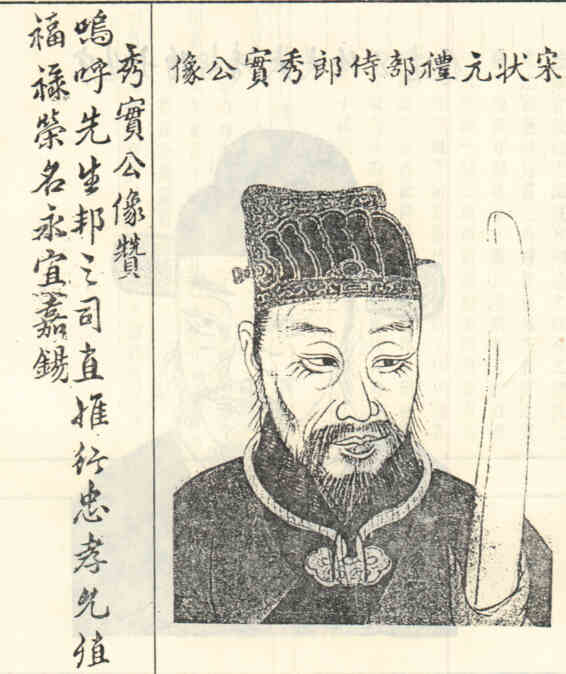 宋状元禮部侍郎秀實公像
秀實公像贊
嗚呼先生邦之司直推行忠孝允值
福祿榮名永宜嘉錫